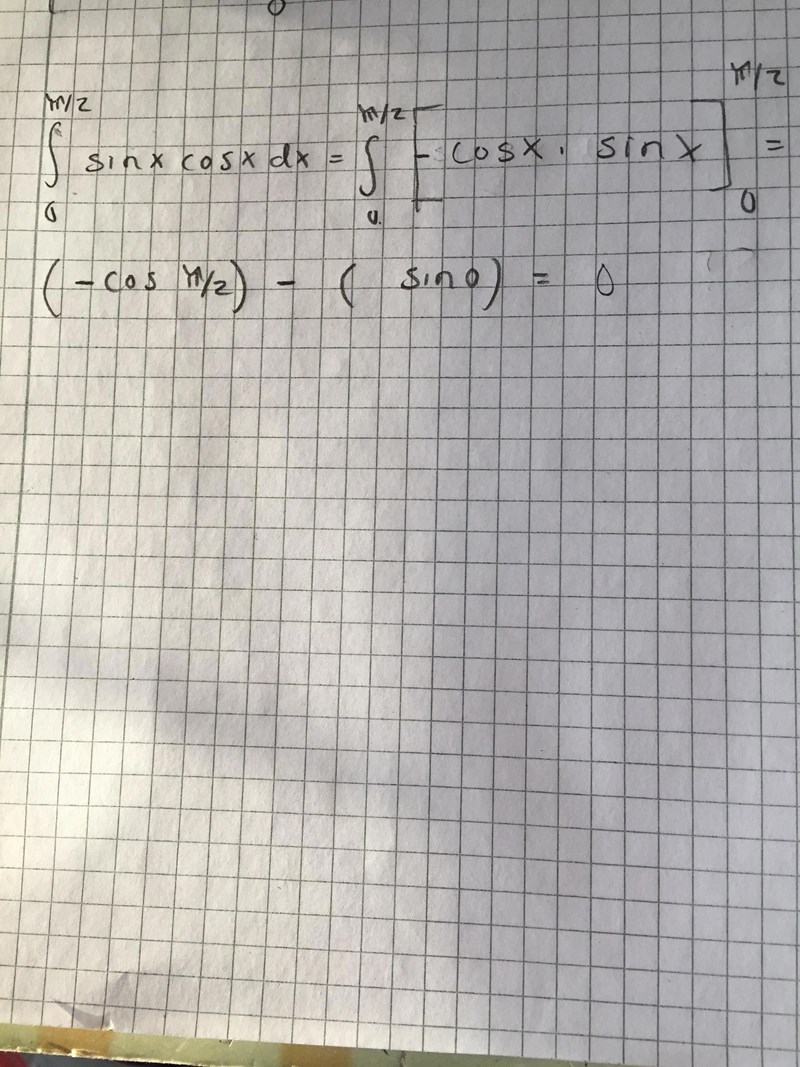 ∫₀^π/2 sinx cosx dx = ∫₀^π/2 [-cosx · sinx]₀^π/2 =
(-cos π/2) - ( sin0) = 0